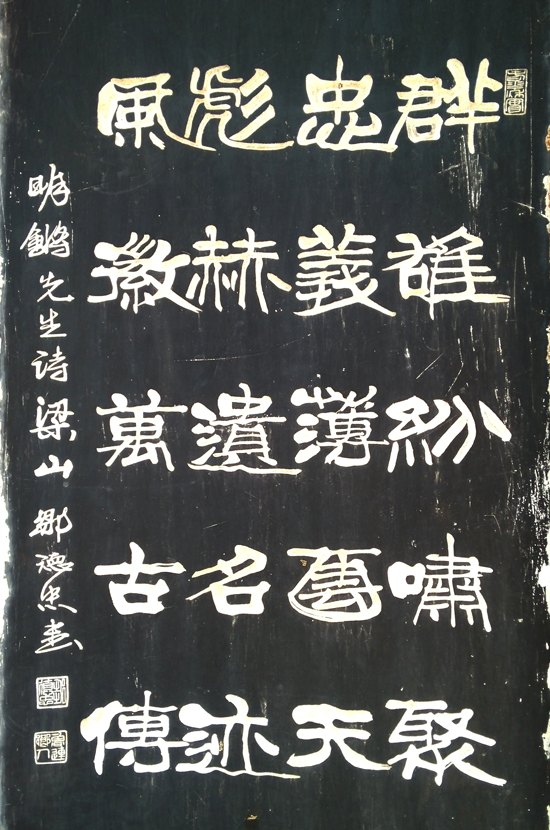 群雄紛嘯聚
忠義薄雲天
彪赫遺名迹
風徽萬古傳
明先生诗梁山鄒德忠書